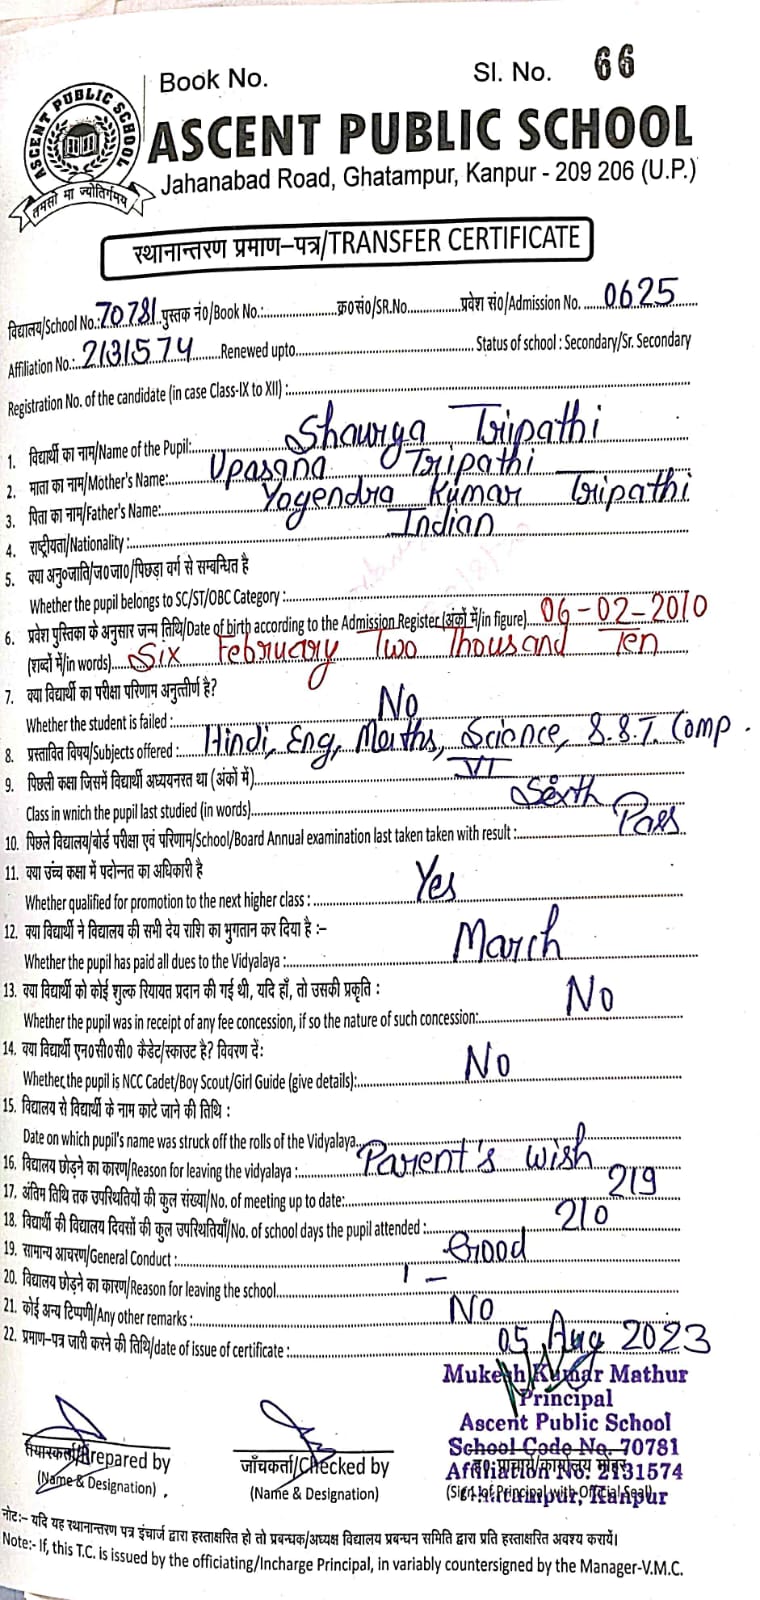 Book No.
Sl. No. 66
ASCENT PUBLIC SCHOOL
तमसो मा ज्योतिर्गमय
ASCENT PUBLIC SCHOOL
Jahanabad Road, Ghatampur, Kanpur - 209 206 (U.P.)
स्थानान्तरण प्रमाण-पत्र/TRANSFER CERTIFICATE
विद्यालय/School No.: 70781 पुस्तक नं०/Book No.:........ क्र०सं०/SR.No........ प्रवेश सं०/Admission No. 0625
Affiliation No.: 2131574 Renewed upto........ Status of school : Secondary/Sr. Secondary
Registration No. of the candidate (in case Class-IX to XII) :........
1. विद्यार्थी का नाम/Name of the Pupil: Shaurya Tripathi
2. माता का नाम/Mother's Name: Upasana Tripathi
3. पिता का नाम/Father's Name: Yogendra Kumar Tripathi
4. राष्ट्रीयता/Nationality : Indian
5. क्या अनु०जाति/ज०जा०/पिछड़ा वर्ग से सम्बन्धित है
Whether the pupil belongs to SC/ST/OBC Category :........
6. प्रवेश पुस्तिका के अनुसार जन्म तिथि/Date of birth according to the Admission Register (अंकों में/in figure) 06-02-2010
(शब्दों में/in words) Six February Two Thousand Ten
7. क्या विद्यार्थी का परीक्षा परिणाम अनुत्तीर्ण है?
Whether the student is failed : No
8. प्रस्तावित विषय/Subjects offered : Hindi, Eng, Maths, Science, S.S.T. Comp.
9. पिछली कक्षा जिसमें विद्यार्थी अध्ययनरत था (अंकों में) VI
Class in wnich the pupil last studied (in words) Sixth
10. पिछले विद्यालय/बोर्ड परीक्षा एवं परिणाम/School/Board Annual examination last taken taken with result : Pass
11. क्या उच्च कक्षा में पदोन्नत का अधिकारी है
Whether qualified for promotion to the next higher class : Yes
12. क्या विद्यार्थी ने विद्यालय की सभी देय राशि का भुगतान कर दिया है :-
Whether the pupil has paid all dues to the Vidyalaya : March
13. क्या विद्यार्थी को कोई शुल्क रियायत प्रदान की गई थी, यदि हाँ, तो उसकी प्रकृति :
Whether the pupil was in receipt of any fee concession, if so the nature of such concession: No
14. क्या विद्यार्थी एन०सी०सी० कैडेट/स्काउट है? विवरण दें:
Whether the pupil is NCC Cadet/Boy Scout/Girl Guide (give details): No
15. विद्यालय से विद्यार्थी के नाम काटे जाने की तिथि :
Date on which pupil's name was struck off the rolls of the Vidyalaya........
16. विद्यालय छोड़ने का कारण/Reason for leaving the vidyalaya : Parent's wish
17. अंतिम तिथि तक उपस्थितियों की कुल संख्या/No. of meeting up to date: 219
18. विद्यार्थी की विद्यालय दिवसों की कुल उपस्थितियाँ/No. of school days the pupil attended : 210
19. सामान्य आचरण/General Conduct : Good
20. विद्यालय छोड़ने का कारण/Reason for leaving the school........
21. कोई अन्य टिप्पणी/Any other remarks : No
22. प्रमाण-पत्र जारी करने की तिथि/date of issue of certificate : 05 Aug 2023
Mukesh Kumar Mathur
Principal
Ascent Public School
School Code No. 70781
Affiliation No. 2131574
Ghatampur, Kanpur
तैयारकर्ता/Prepared by
(Name & Designation)
जाँचकर्ता/Checked by
(Name & Designation)
ह० प्राचार्य/कार्यालय मोहर
(Sign. of Principal with Official Seal)
नोट:- यदि यह स्थानान्तरण पत्र इंचार्ज द्वारा हस्ताक्षरित हो तो प्रबन्धक/अध्यक्ष विद्यालय प्रबन्धन समिति द्वारा प्रति हस्ताक्षरित अवश्य करायें।
Note:- If, this T.C. is issued by the officiating/Incharge Principal, in variably countersigned by the Manager-V.M.C.